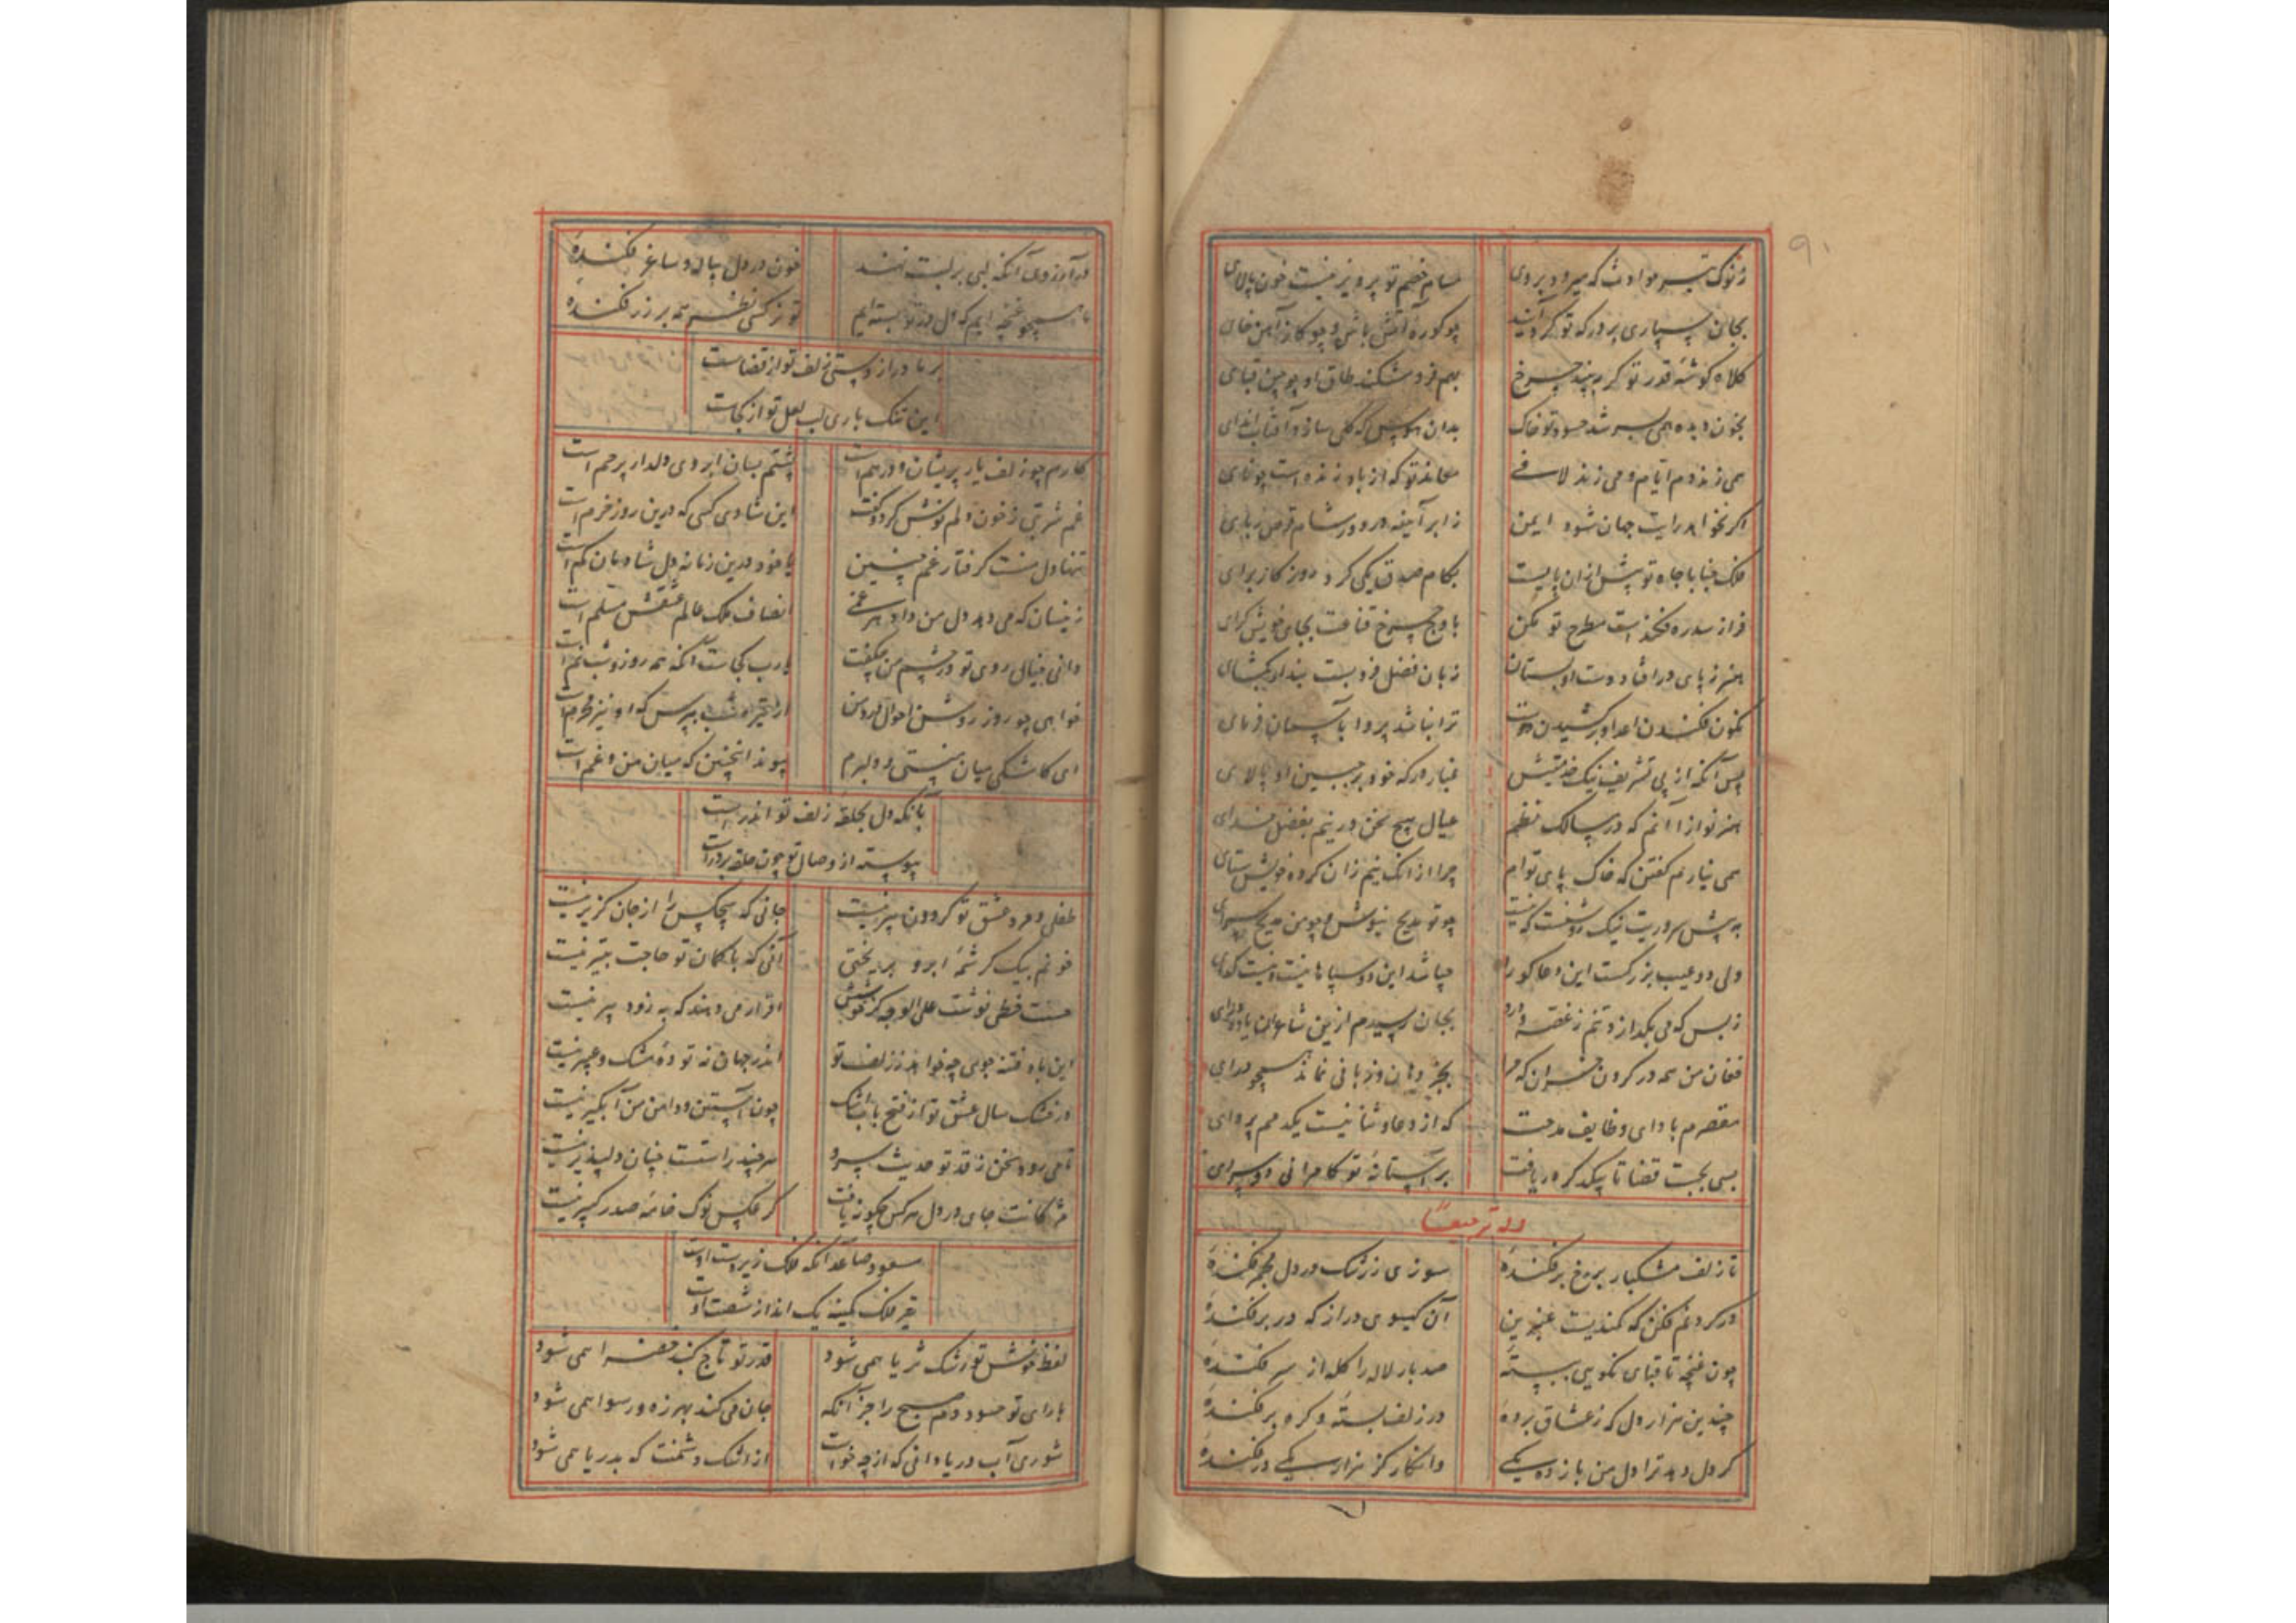 ز نوک تیر حوادث که میرود بر وی مسام خصم تو پرویز نیست خون پالای
بجان سپاری بر درکه تو کر آیند چو کوره آتش باش و چو کاز آهن خای
کلاه کوشه قدر تو کر به بیند چرخ بهم فرو شکند طاق او چو چین قبای
بخون دیده همی سرشد حسود تو خاک بدان هوس که کلی سازد آفتاب اندای
همی زند دم ایام و می زند لافی معاند تو که از باد زنده است چو نای
اکر نخواهد رایت جهان شود ایمن ز ابر آینه در در شام قرص ربای
فلک جنابا جاه تو پیش از ان بایست بکام صدق یکی کرد روز کار برای
فراز سدره فکندست مطرح تو مکن باوج چرخ قناعت بجای خویش کرای
هنر ز پای در افتاد دست او بستان زبان فضل فرو بست بند او بکشای
کنون فکندن اعدا و برکشیدن دوست ترا نباشد پروا باسمان فرمای
پس آنکه از پی تشریف نیک خدمتیش غبار درکه خود بر جبین او پالای
هنر نوازا آنم که در مسالک نظم عیال هیچ سخن ور نیم بفضل خدای
همی نیارم کفتن که خاک پای توام چرا از انک نیم زان کروه خویش ستای
به پیش سروریت نیک روشنست که نیست چو تو مدیح نیوش و چو من مدیح سرای
ولی دو عیب بزرکست این دعا کو را جباشد این دو سپاهانیست و نیست کدای
ز بس که می بکدازد تنم ز غصه دارد بجان رسیدم ازین شاعران یاوه درای
فغان من همه در کردن خران که مرا بجز دهان و زبانی نماند همچو درای
مقصرم باداى وظایف مدحت که از دعا و ثنا نیست یکدمم پروای
بسی بجست قضا تا بیکدکر دریافت بر آستانه تو کامرانی دو سرای
وله ترجیعا
تا زلف مشکبار برخ بر فکنده سوزی ز رشک در دل مجمر فکنده
در کردنم فکن که کمندیست عنبرین آن کیسوی دراز که در بر فکنده
چون غنچه تا قبای نکویی ببسته صد بار لاله را کله از سر فکنده
چندین هزار دل که ز عشاق برده در زلف بسته و کره بر فکنده
کر دل دهد ترا دل من باز ده یکی و انکار کز هزار یکی در فکنده
در آرزوی آنکه لبی بر لبت نهند خون در دل پیاله و ساغر فکنده
ما همچو غنچه ایم که دل در تو بسته ایم تو نرکسی نظر همه بر زر فکنده
بر ما دراز دستی زلف تو از قضاست
این تنک باری لب لعل تو از کجاست
کارم چو زلف یار پریشان و درهم است پشتم بسان ابروی دلدار پر خم است
غم شربتی ز خون دلم نوش کرد و کفت این شادی کسی که درین روز خرم است
تنها دل منست کرفتار غم چنین یا خود درین زمانه دل شادمان کم است
زینسان که می دهد دل من داد هر غمی انصاف ملک عالم عشقش مسلم است
دانی خیال روی تو در چشم من چکفت یارب کجاست آنکه همه روز و شب نم است
خواهی چو روز روشن احوال درد من از تیره شب بپرس که او نیز محرم است
ای کاشکی میان منستی و دلبرم پیوند انچنین که میان من و غم است
بانکه دل بحلقه زلف تو اندرست
پیوسته از وصال تو چون حلقه بر درست
طفلی و مرد عشق تو کردون پیر نیست جانی که هیچکس را از جان کزیر نیست
خونم بیک کرشمه ابرو بریختی آنی که با کمان تو حاجت بتیر نیست
حسنت خطی نوشت علی الوجه کز خوشیش اقرار می دهند که به زود پیر نیست
این باد فتنه جوی چه خواهد ز زلف تو اندر جهان نه توده مشک و عبیر نیست
در خشک سال عشق تو از فتح باب اشک چون آستین و دامن من آبکیر نیست
تا می رود سخن ز قد تو حدیث سرو هر چند راستست چنان دلپذیر نیست
مژکانت جای در دل هر کس چکونه یافت کر عکس نوک خامه صدر کبیر نیست
مسعود صاعد آنکه فلک زیر دست اوست
تیر فلک کمینه یک انداز شصت اوست
لفظ خوشش تو رشک ثریا همی شود قدر تو تاج کنبد خضرا همی شود
با رای تو حسود دم صبح را جز آنکه جان می کند بهرزه و رسوا همی شود
شوری آب دریا دانی که از چه خواست از اشک دشمنت که بدریا همی شود